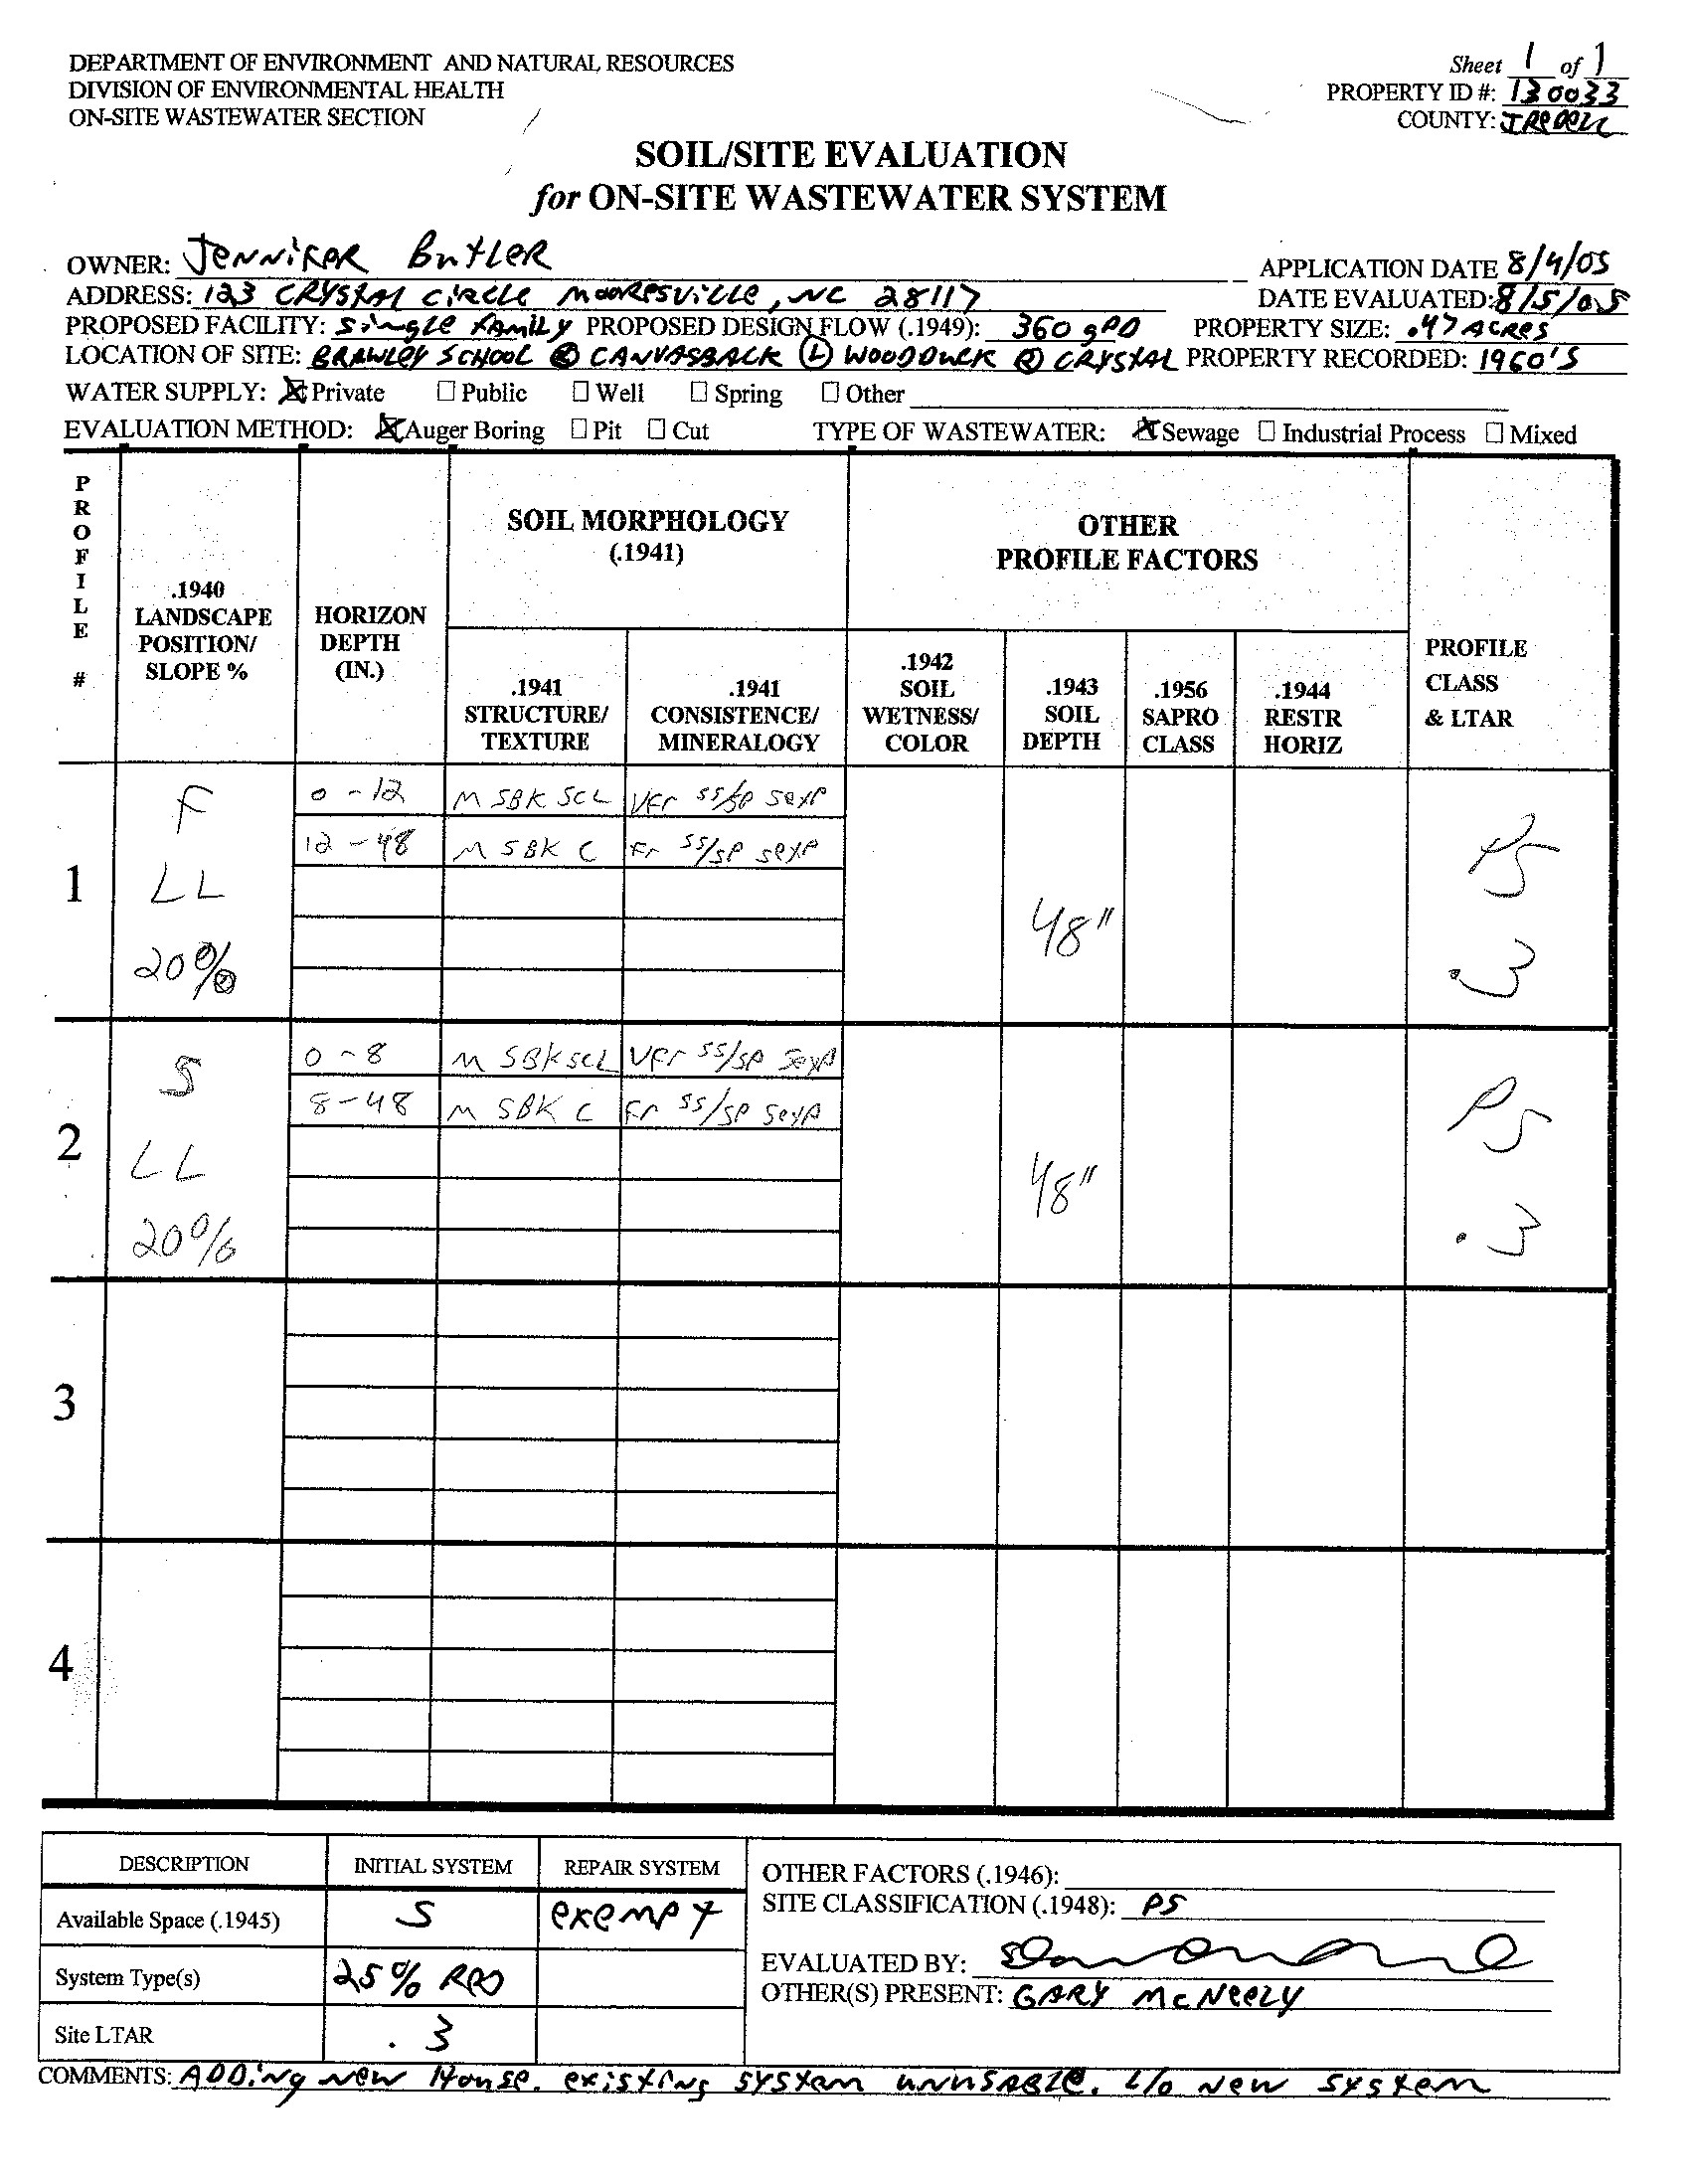 DEPARTMENT OF ENVIRONMENT AND NATURAL RESOURCES
DIVISION OF ENVIRONMENTAL HEALTH
ON-SITE WASTEWATER SECTION
Sheet 1 of 1
PROPERTY ID #: 130033
COUNTY: IREDELL
SOIL/SITE EVALUATION
for ON-SITE WASTEWATER SYSTEM
OWNER: JENNIFER BUTLER APPLICATION DATE 8/4/05
ADDRESS: 123 CRYSTAL CIRCLE MOORESVILLE, NC 28117 DATE EVALUATED: 8/5/05
PROPOSED FACILITY: Single FAMILY PROPOSED DESIGN FLOW (.1949): 360 gPD PROPERTY SIZE: .47 ACRES
LOCATION OF SITE: BRAWLEY SCHOOL (R) CANVASBACK (L) WOODDUCK (R) CRYSTAL PROPERTY RECORDED: 1960'S
WATER SUPPLY: ☒ Private ☐ Public ☐ Well ☐ Spring ☐ Other
EVALUATION METHOD: ☒ Auger Boring ☐ Pit ☐ Cut TYPE OF WASTEWATER: ☒ Sewage ☐ Industrial Process ☐ Mixed
PROFILE #
.1940 LANDSCAPE POSITION/ SLOPE %
HORIZON DEPTH (IN.)
SOIL MORPHOLOGY (.1941)
OTHER PROFILE FACTORS
.1941 STRUCTURE/ TEXTURE
.1941 CONSISTENCE/ MINERALOGY
.1942 SOIL WETNESS/ COLOR
.1943 SOIL DEPTH
.1956 SAPRO CLASS
.1944 RESTR HORIZ
PROFILE CLASS & LTAR
1
F
LL
20%
0 - 12 M SBK SCL VFr SS/SP SeXP
12 - 48 M SBK C Fr SS/SP SeXP
48"
PS
.3
2
S
LL
20%
0 - 8 M SBK SCL VFr SS/SP SeXP
8 - 48 M SBK C Fr SS/SP SeXP
48"
PS
.3
3
4
DESCRIPTION INITIAL SYSTEM REPAIR SYSTEM
Available Space (.1945) S exempt
System Type(s) 25% RED
Site LTAR .3
OTHER FACTORS (.1946):
SITE CLASSIFICATION (.1948): PS
EVALUATED BY:
OTHER(S) PRESENT: GARY McNEELY
COMMENTS: ADDING NEW House. existing system unusable. L/O New system